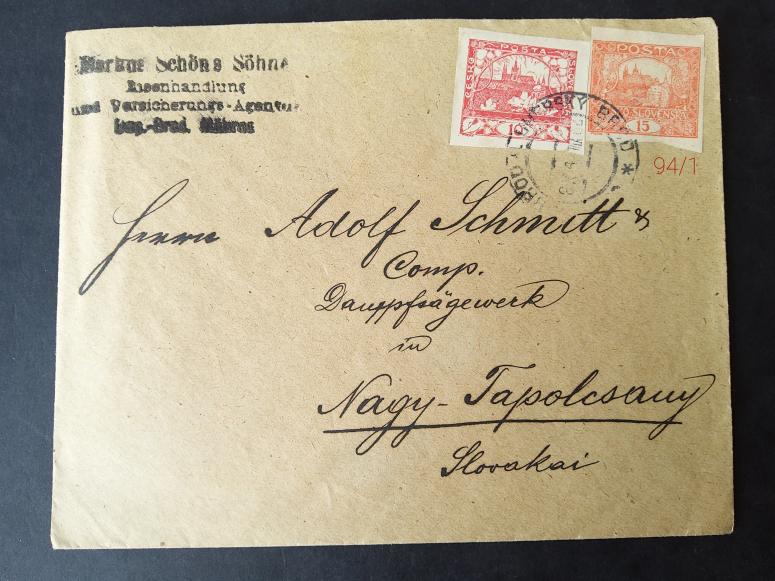 Markus Schöns Söhne
Eisenhandlung
und Versicherungs-Agentur
Ung.-Brod, Mähren
POSTA
ČESKO SLOVENSKÁ
POSTA
ČESKO-SLOVENSKÁ
15
UHERSKÝ BROD
94/1
Herrn Adolf Schmitt &
Comp.
Dampfsägewerk
in
Nagy-Tapolcsany
Slovakai